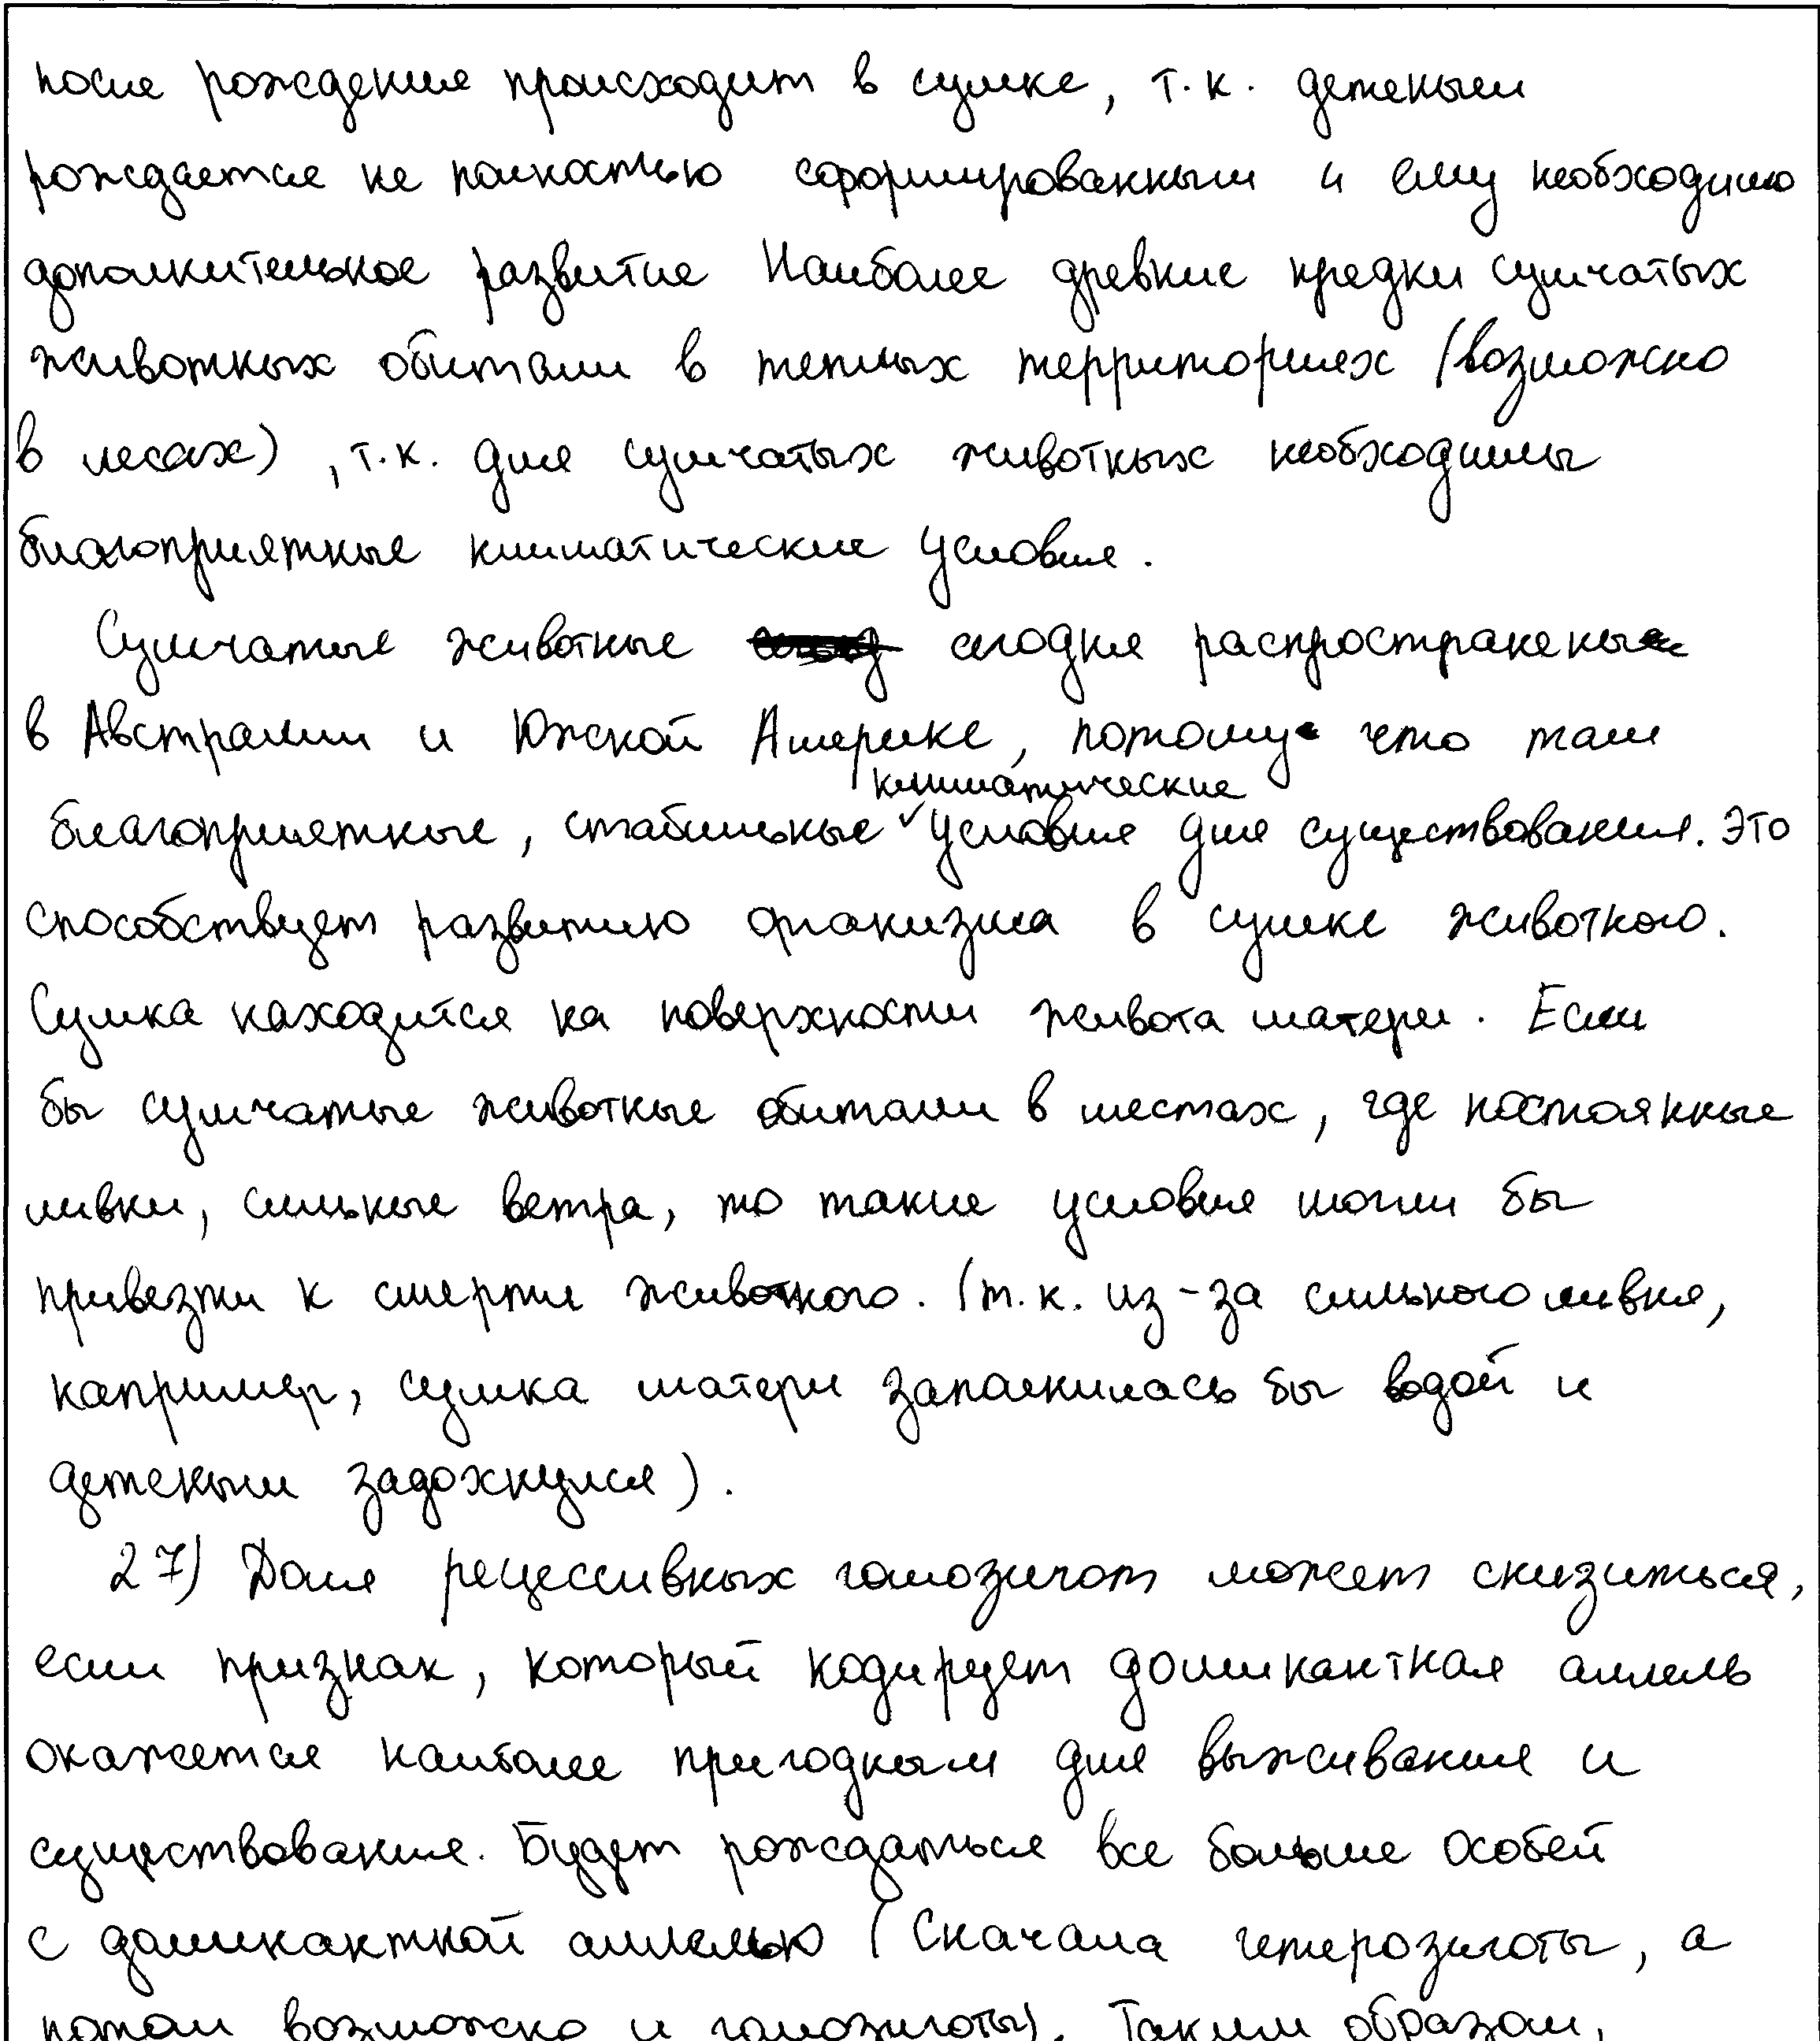 после рождения происходит в сумке, т.к. детеныш
рождается не полностью сформированным и ему необходимо
дополнительное развитие Наиболее древние предки сумчатых
животных обитали в теплых территориях (возможно
в лесах), т.к. для сумчатых животных необходимы
благоприятные климатические условия.
Сумчатые животные сегодня распространены
в Австралии и Южной Америке, потому что там
климатические
благоприятные, стабильные условия для существования. Это
способствует развитию организма в сумке животного.
Сумка находится на поверхности живота матери. Если
бы сумчатые животные обитали в местах, где постоянные
ливни, сильные ветра, то такие условия могли бы
привезти к смерти животного. (т.к. из-за сильного ливня,
например, сумка матери заполнилась бы водой и
детеныш задохнулся).
27) Доля рецессивных гомозигот может снизиться,
если признак, который кодирует доминантная аллель
окажется наиболее пригодным для выживания и
существования. Будет рождаться все больше особей
с доминантной аллелью (Сначала гетерозиготы, а
потом возможно и гомозиготы). Таким образом,